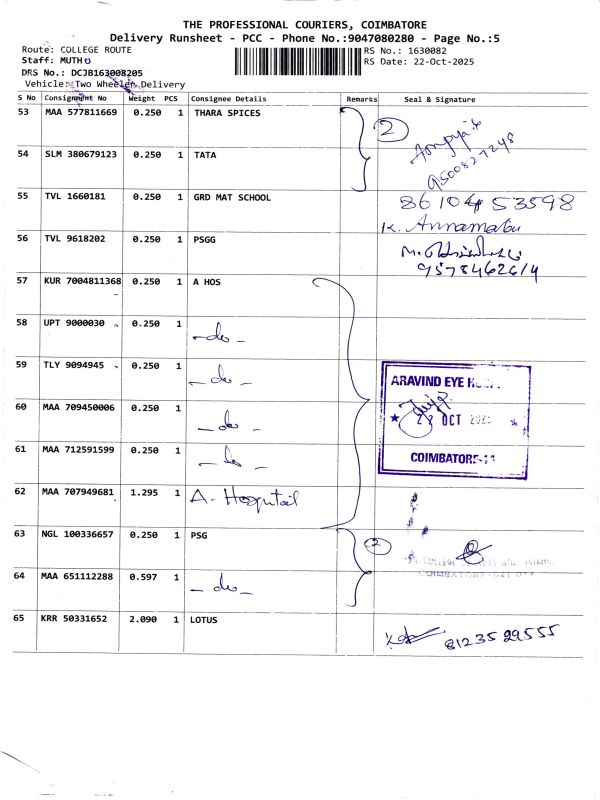 THE PROFESSIONAL COURIERS, COIMBATORE
Delivery Runsheet - PCC - Phone No.:9047080280 - Page No.:5
Route: COLLEGE ROUTE
RS No.: 1630082
Staff: MUTHU
RS Date: 22-Oct-2025
DRS No.: DCJB163008205
Vehicle: Two Wheeler Delivery
S No Consignment No Weight PCS Consignee Details Remarks Seal & Signature
53 MAA 577811669 0.250 1 THARA SPICES
2
9500827248
54 SLM 380679123 0.250 1 TATA
55 TVL 1660181 0.250 1 GRD MAT SCHOOL
8610453598
K. Annamalai
56 TVL 9618202 0.250 1 PSGG
9578462614
57 KUR 7004811368 0.250 1 A HOS
58 UPT 9000030 0.250 1 -do-
59 TLY 9094945 0.250 1 -do-
ARAVIND EYE
60 MAA 709450006 0.250 1 -do-
22 OCT 2025
61 MAA 712591599 0.250 1 -do-
COIMBATORE-14
62 MAA 707949681 1.295 1 A- Hospital
63 NGL 100336657 0.250 1 PSG
2
64 MAA 651112288 0.597 1 -do-
65 KRR 50331652 2.090 1 LOTUS
8123529555